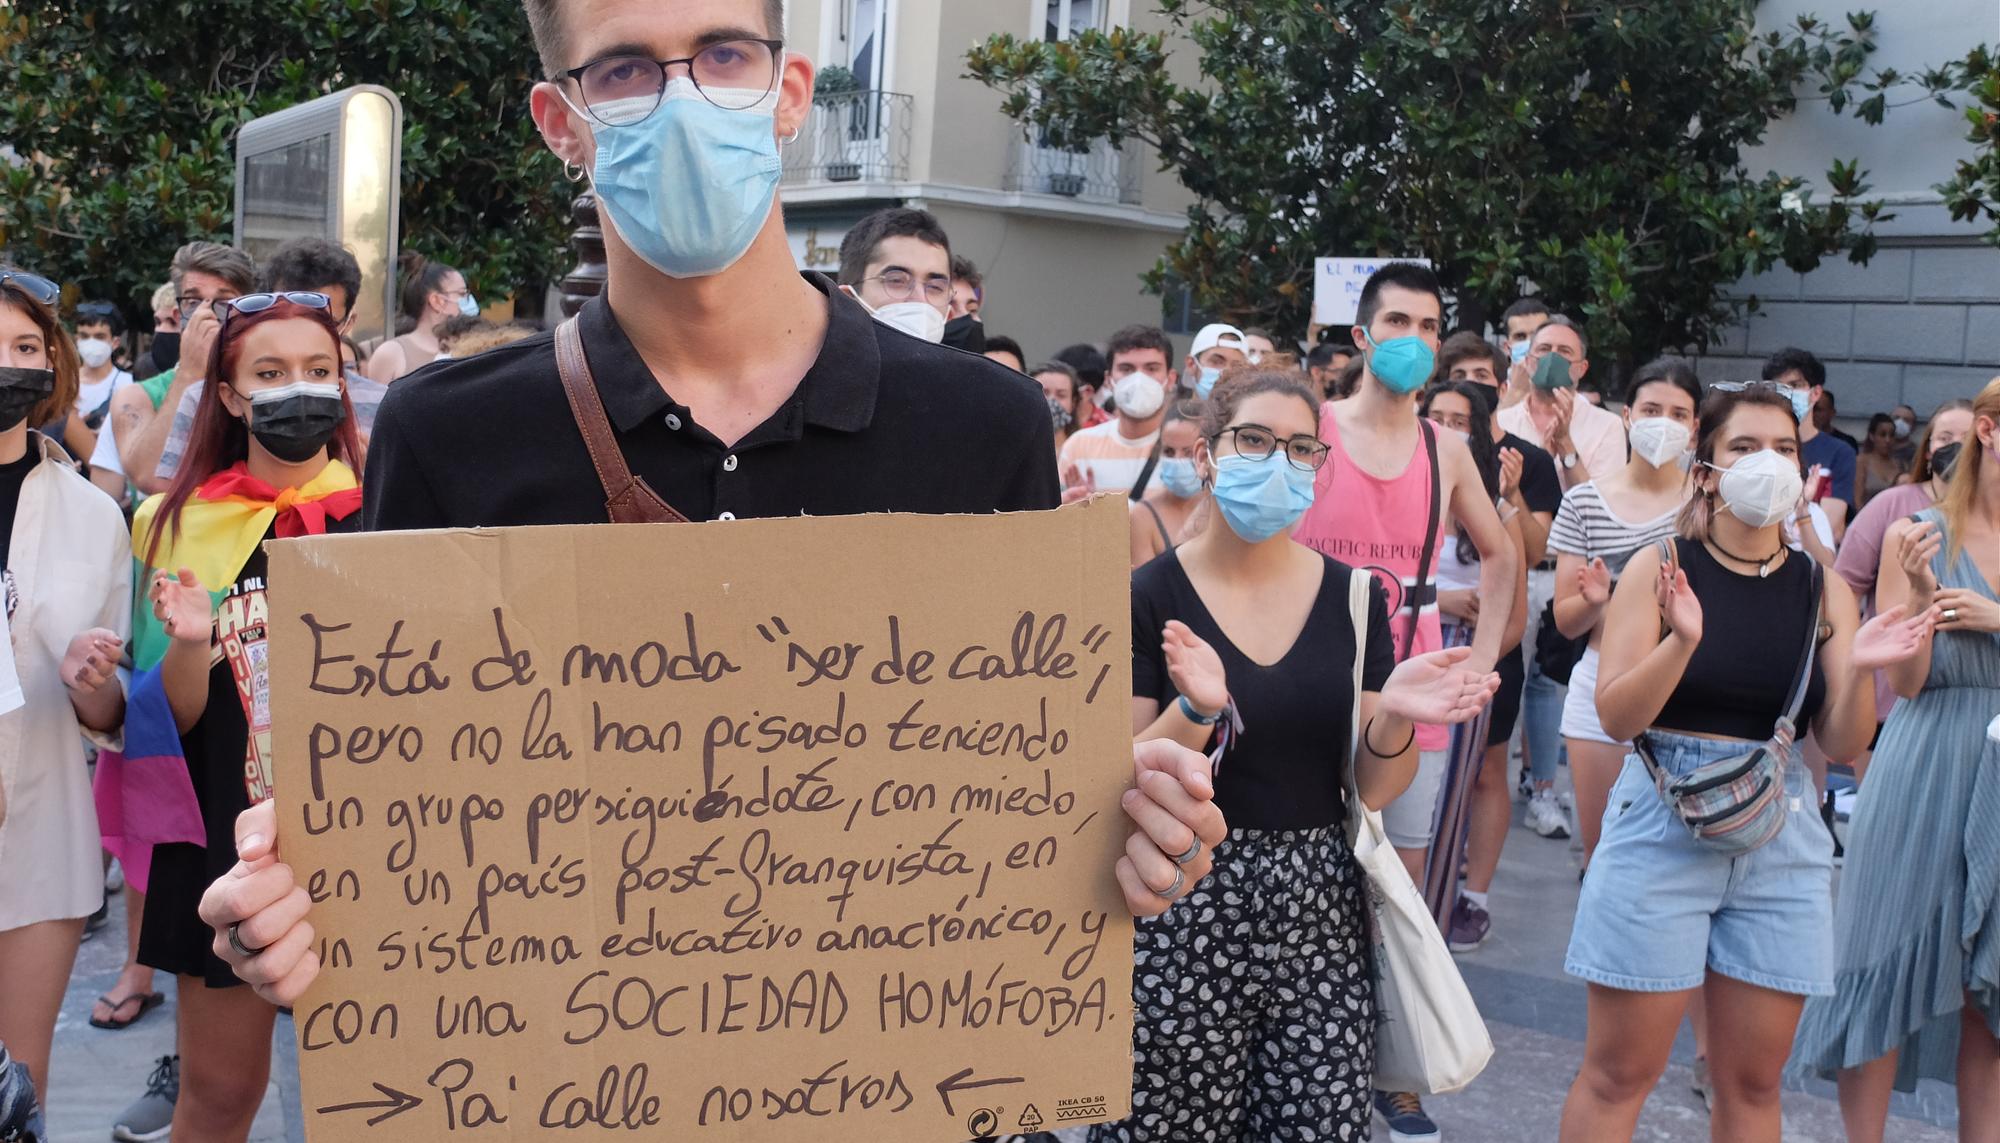 Está de moda "ser de calle",
pero no la han pisado teniendo
un grupo persiguiéndote, con miedo,
en un país post-franquista, en
un sistema educativo anacrónico, y
con una SOCIEDAD HOMóFOBA.
→ Pa' calle nosotros ←
IKEA CB 50
20
PAP
PACIFIC REPUB
EL